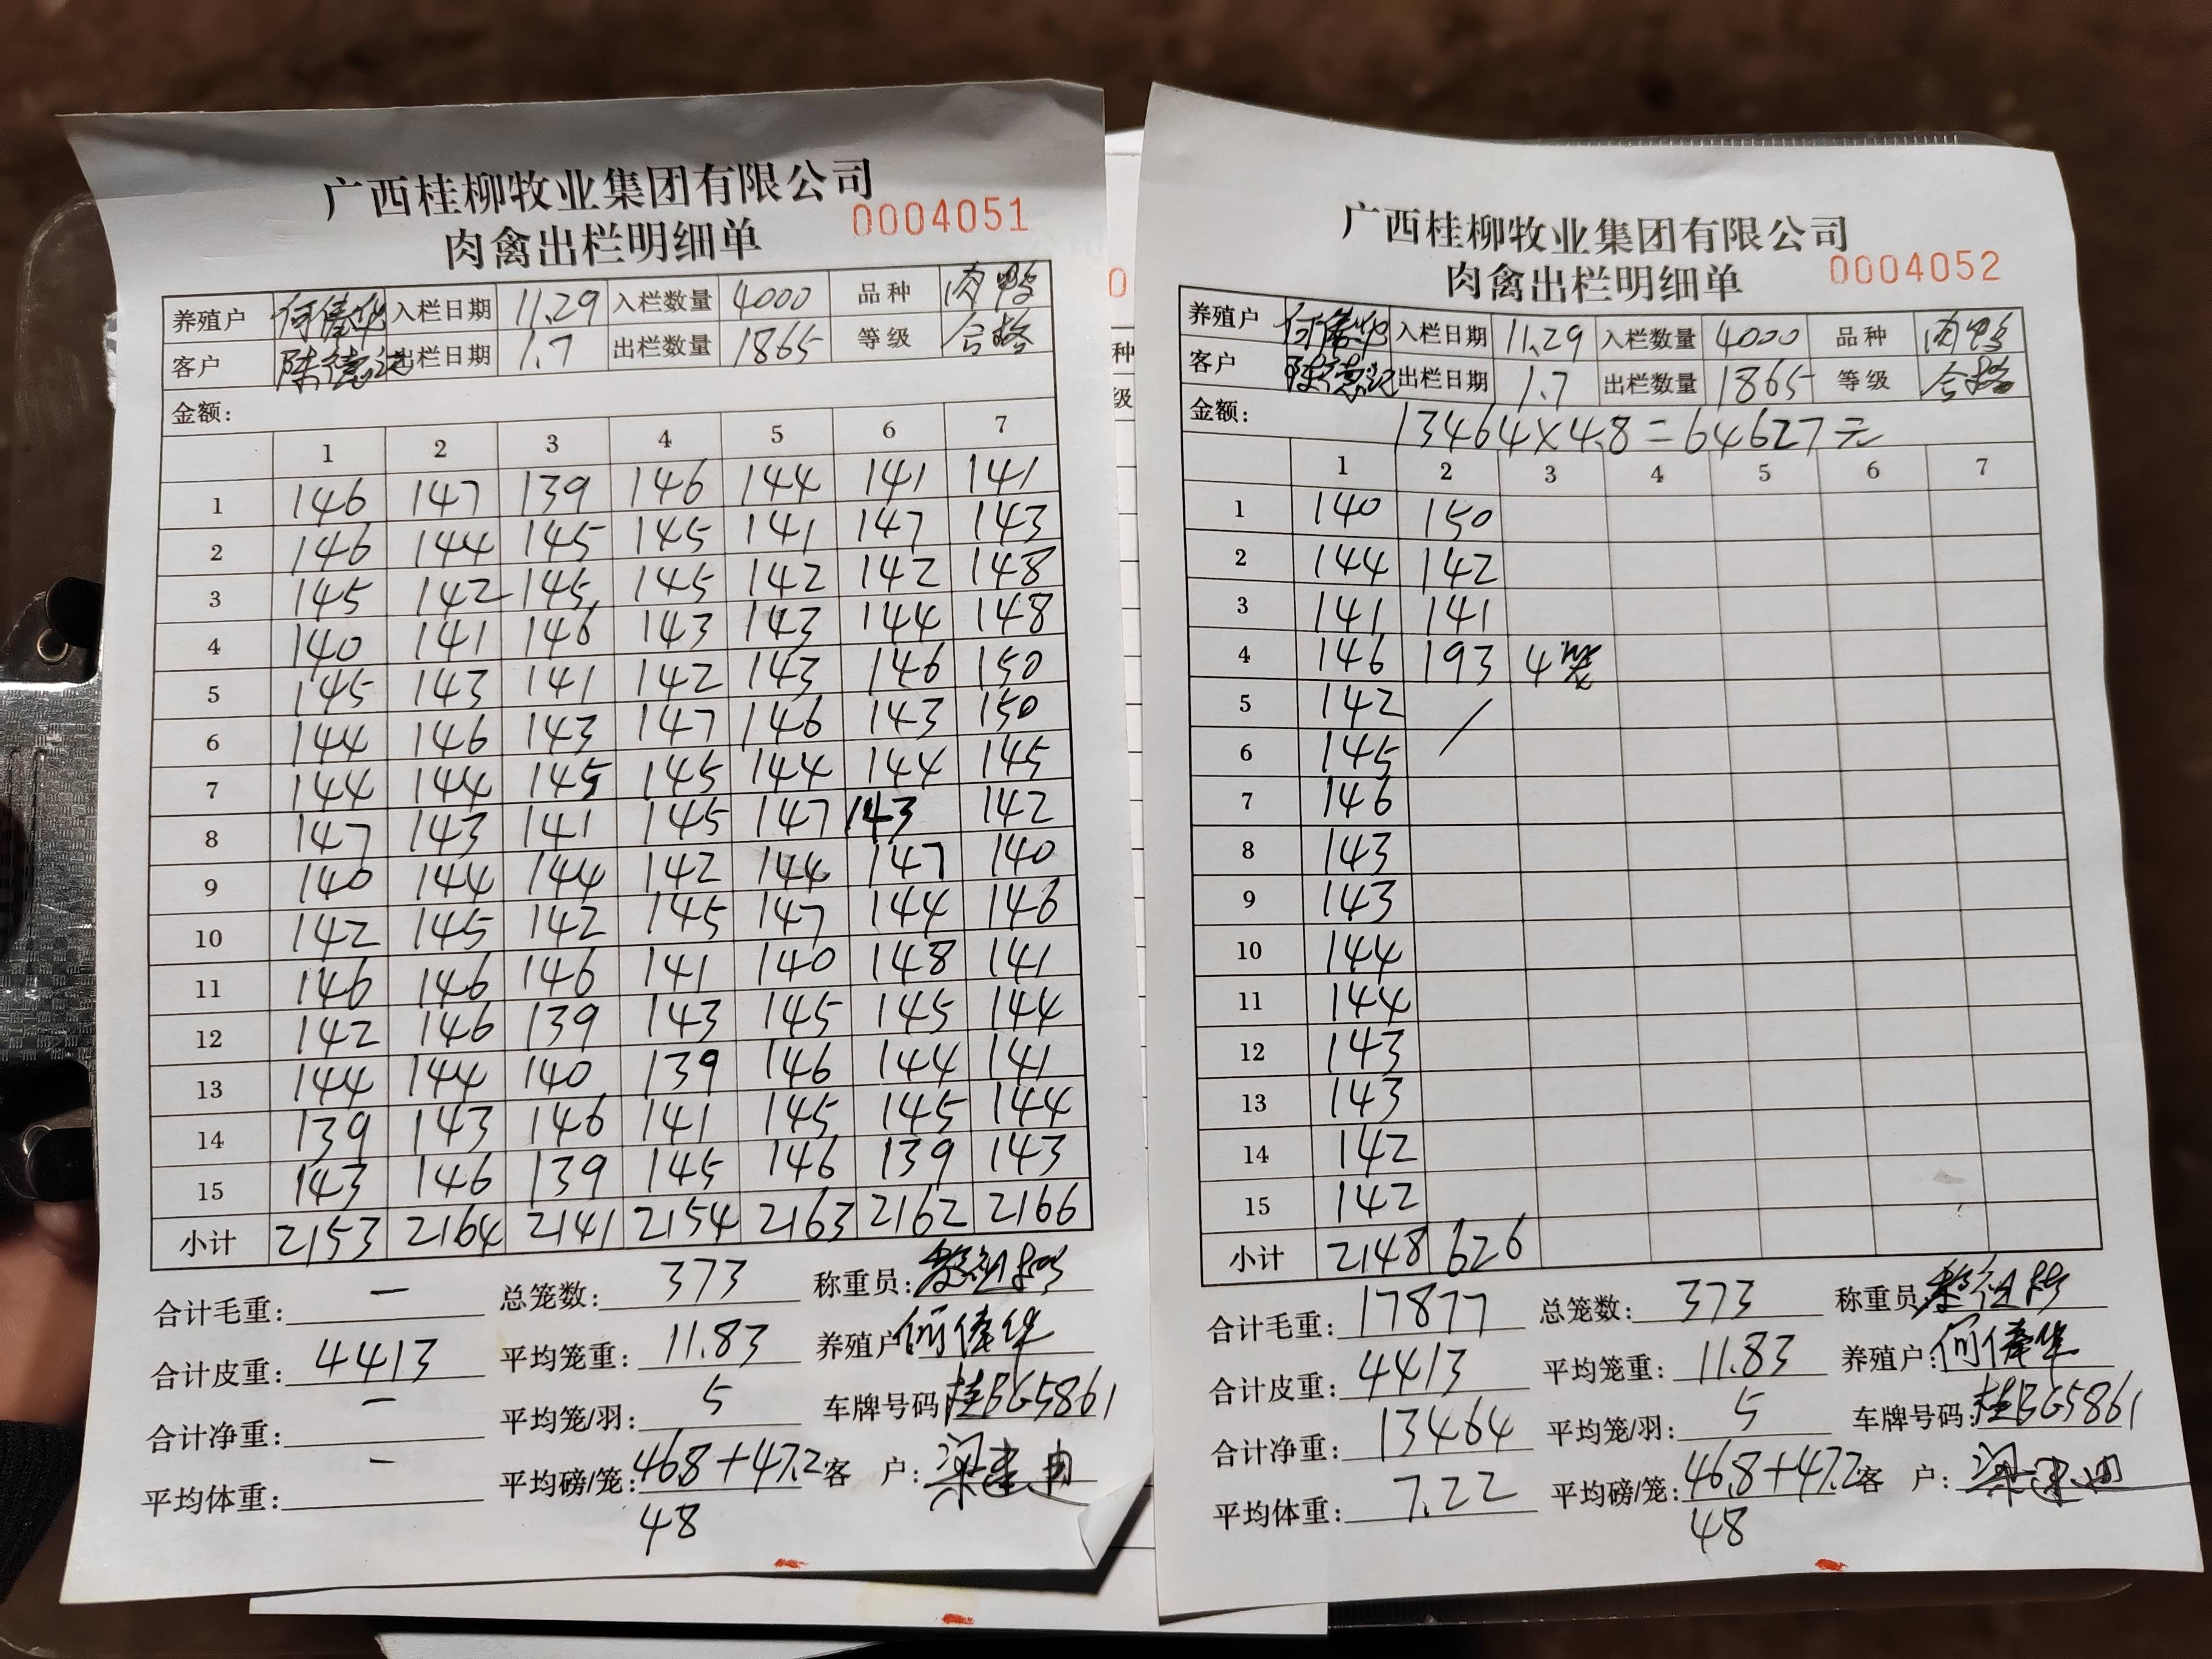 广西桂柳牧业集团有限公司
肉禽出栏明细单 0004051
养殖户 何伟华 入栏日期 11.29 入栏数量 4000 品种 肉鸭
客户 陈德记 出栏日期 1.7 出栏数量 1865 等级 合格
金额:
1 2 3 4 5 6 7
1 146 147 139 146 144 141 141
2 146 144 145 145 141 147 143
3 145 142 145 145 142 142 148
4 140 141 146 143 143 144 148
5 145 143 141 142 143 146 150
6 144 146 143 147 146 143 150
7 144 144 145 145 144 144 145
8 147 143 141 145 147 143 142
9 140 144 144 142 144 147 140
10 142 145 142 145 147 144 146
11 146 146 146 141 140 148 141
12 142 146 139 143 145 145 144
13 144 144 140 139 146 144 141
14 139 143 146 141 145 145 144
15 143 146 139 145 146 139 143
小计 2153 2164 2141 2154 2163 2162 2166
合计毛重: — 总笼数: 373 称重员:
合计皮重: 4413 平均笼重: 11.83 养殖户: 何伟华
合计净重: — 平均笼/羽: 5 车牌号码: 桂BG5861
平均体重: — 平均磅/笼: 46.8+47.2 客 户:
48
广西桂柳牧业集团有限公司
肉禽出栏明细单 0004052
养殖户 何伟华 入栏日期 11.29 入栏数量 4000 品种 肉鸭
客户 陈德记 出栏日期 1.7 出栏数量 1865 等级 合格
金额: 13464×4.8=64627元
1 2 3 4 5 6 7
1 140 150
2 144 142
3 141 141
4 146 193 4笼
5 142 /
6 145
7 146
8 143
9 143
10 144
11 144
12 143
13 143
14 142
15 142
小计 2148 626
合计毛重: 17877 总笼数: 373 称重员:
合计皮重: 4413 平均笼重: 11.83 养殖户: 何伟华
合计净重: 13464 平均笼/羽: 5 车牌号码: 桂BG5861
平均体重: 7.22 平均磅/笼: 46.8+47.2 客 户:
48